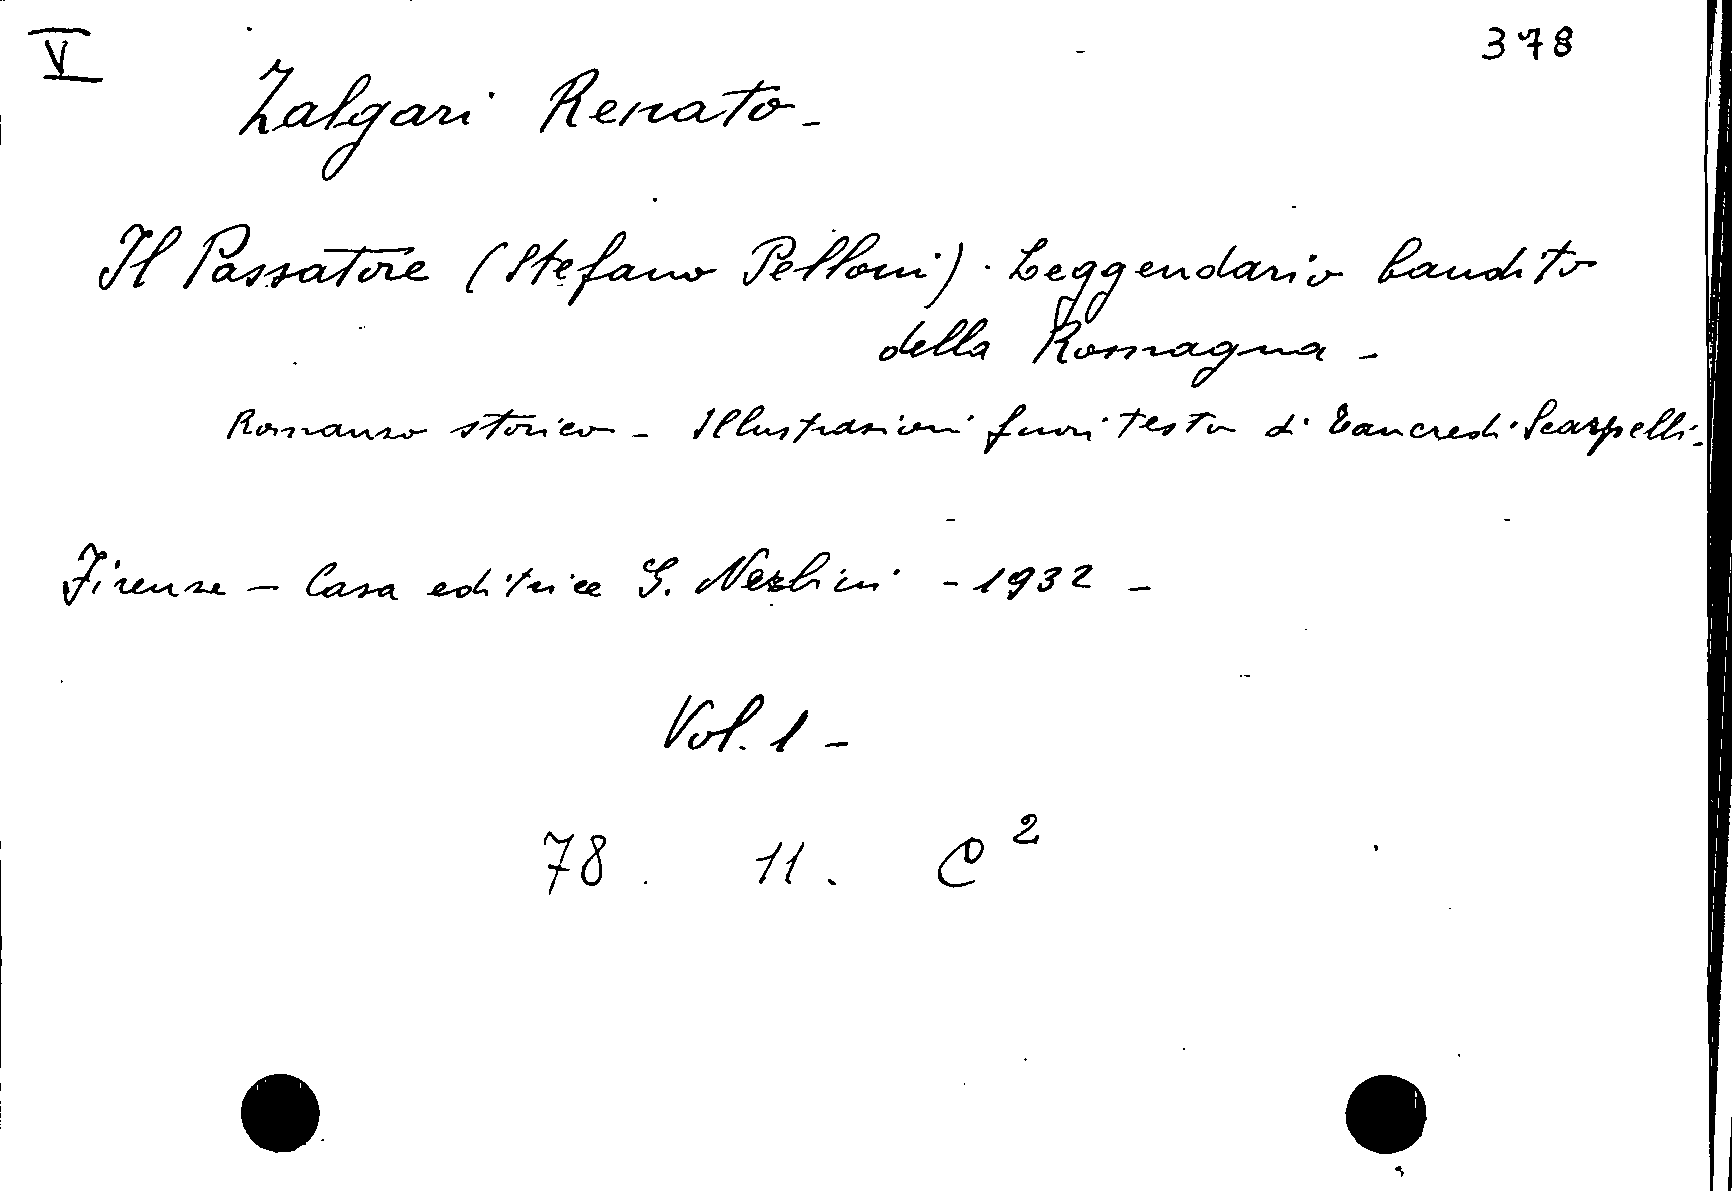 V 378
Zalgari Renato -
Il Passatore (Stefano Pelloni). Leggendario bandito
della Romagna -
Romanzo storico - Illustrazioni fuori testo di Tancredi Scarpelli -
Firenze - Casa editrice G. Nerbini - 1932 -
Vol. 1 -
78. 11. C²